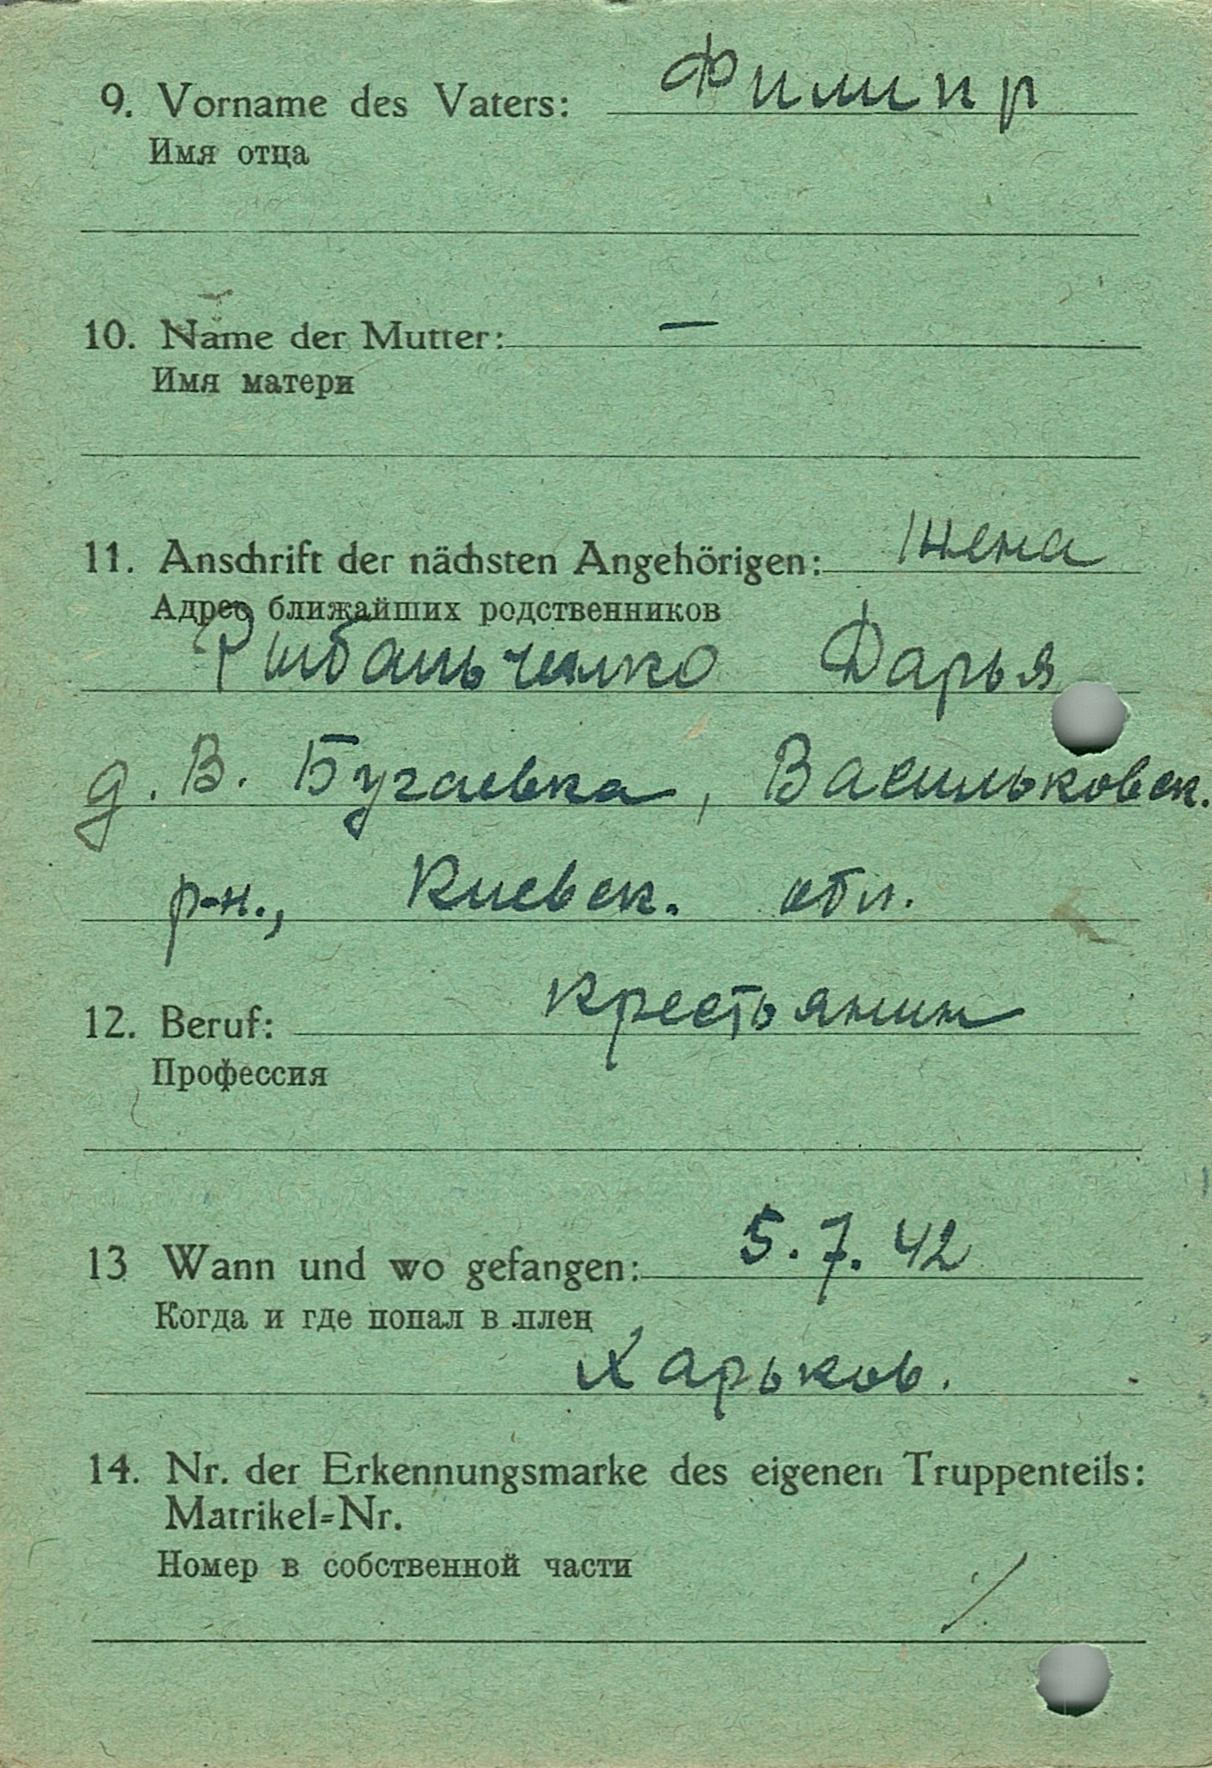 9. Vorname des Vaters: Филипр
Имя отца
10. Name der Mutter: —
Имя матери
11. Anschrift der nächsten Angehörigen: Жена
Адрес ближайших родственников
Дарья
д. В. Бугаевка, Васильковск.
р-н., Киевск. обл.
12. Beruf: Крестьянин
Профессия
13 Wann und wo gefangen: 5.7.42
Когда и где попал в плен
Харьков.
14. Nr. der Erkennungsmarke des eigenen Truppenteils:
Matrikel=Nr.
Номер в собственной части
⁒